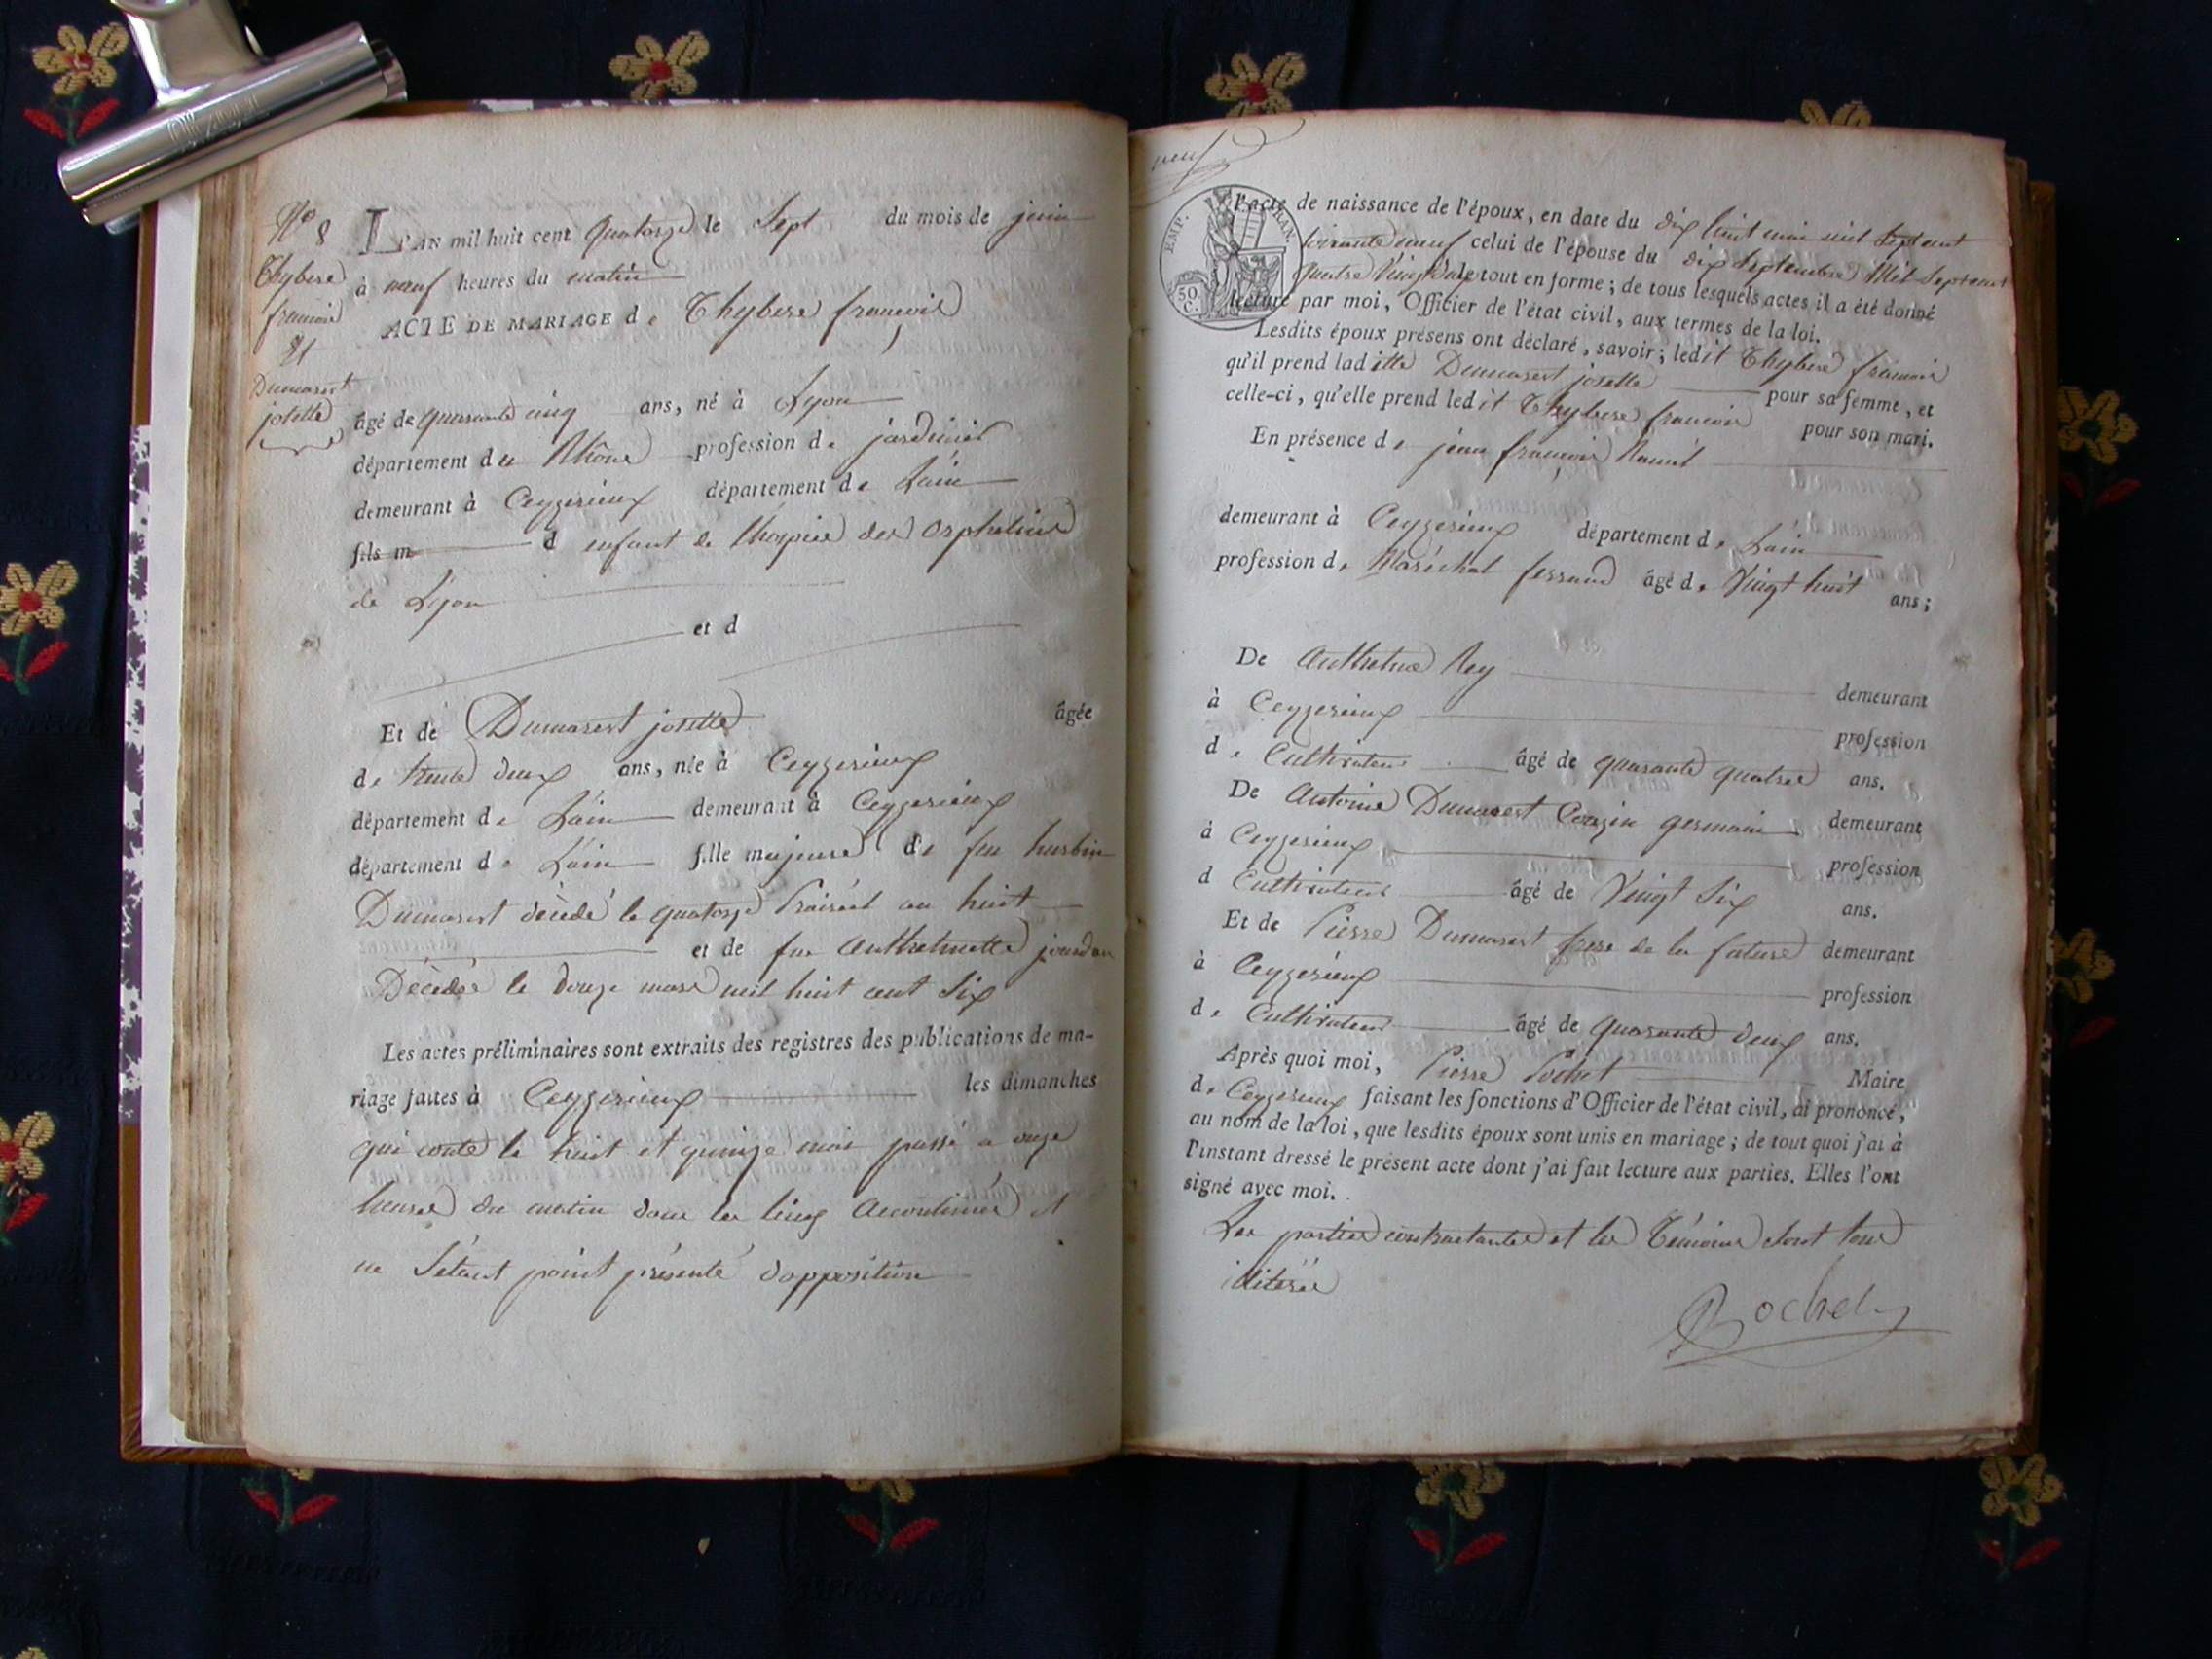 N° 8
Thybere
francois
et
Dumarest
josette
L'AN mil huit cent quatorze le Sept du mois de juin
à neuf heures du matin
ACTE DE MARIAGE de Thybere francois
âgé de quarante cinq ans, né à Lyon
département du Rhône profession de jardinier
demeurant à Ceyzerieux département de Lain
fils m d enfant de lhospice des orphelins
de Lyon
et d
Et de Dumarest josette âgée
de trente deux ans, née à Ceyzerieux
département de Lain demeurant à Ceyzerieux
département de Lain fille majeure de feu
Dumarest décédé le quatorze Prairéal an huit
et de feu Anthelmette jourdan
Décédée le douze mars mil huit cent Six
Les actes préliminaires sont extraits des registres des publications de ma-
riage faites à Ceyzerieux les dimanches
qui conte le huit et quinze mai passé a onze
heures du matin dans les lieux accoutumés et
ne Sétant point présenté dopposition
neuf
EMP. FRAN.
50
C.
l'acte de naissance de l'époux, en date du dix huit mai mil Septcent
soixante neuf celui de l'épouse du dix Septembre Mil Septcent
quatre Vingt le tout en forme; de tous lesquels actes il a été donné
lecture par moi, Officier de l'état civil, aux termes de la loi.
Lesdits époux présens ont déclaré, savoir; ledit Thybere francois
qu'il prend laditte Dumarest josette pour sa femme, et
celle-ci, qu'elle prend ledit Thybere francois pour son mari.
En présence de jean francois
demeurant à Ceyzerieux département de Lain
profession de Maréchal ferrand âgé de Vingt huit ans;
De Anthelme Rey demeurant
à Ceyzerieux profession
de Cultivateur âgé de quarante quatre ans.
De Antoine Dumarest Cousin germain demeurant
à Ceyzerieux profession
d Cultivateur âgé de Vingt Six ans.
Et de Pierre Dumarest frere de la future demeurant
à Ceyzerieux profession
de Cultivateur âgé de quarante deux ans.
Après quoi moi, Pierre Pochet Maire
de Ceyzerieux faisant les fonctions d'Officier de l'état civil, ai prononcé,
au nom de la loi, que lesdits époux sont unis en mariage; de tout quoi j'ai à
l'instant dressé le présent acte dont j'ai fait lecture aux parties. Elles l'ont
signé avec moi.
Les parties contractantes et les Témoins sont tous
illiterés
Pochet